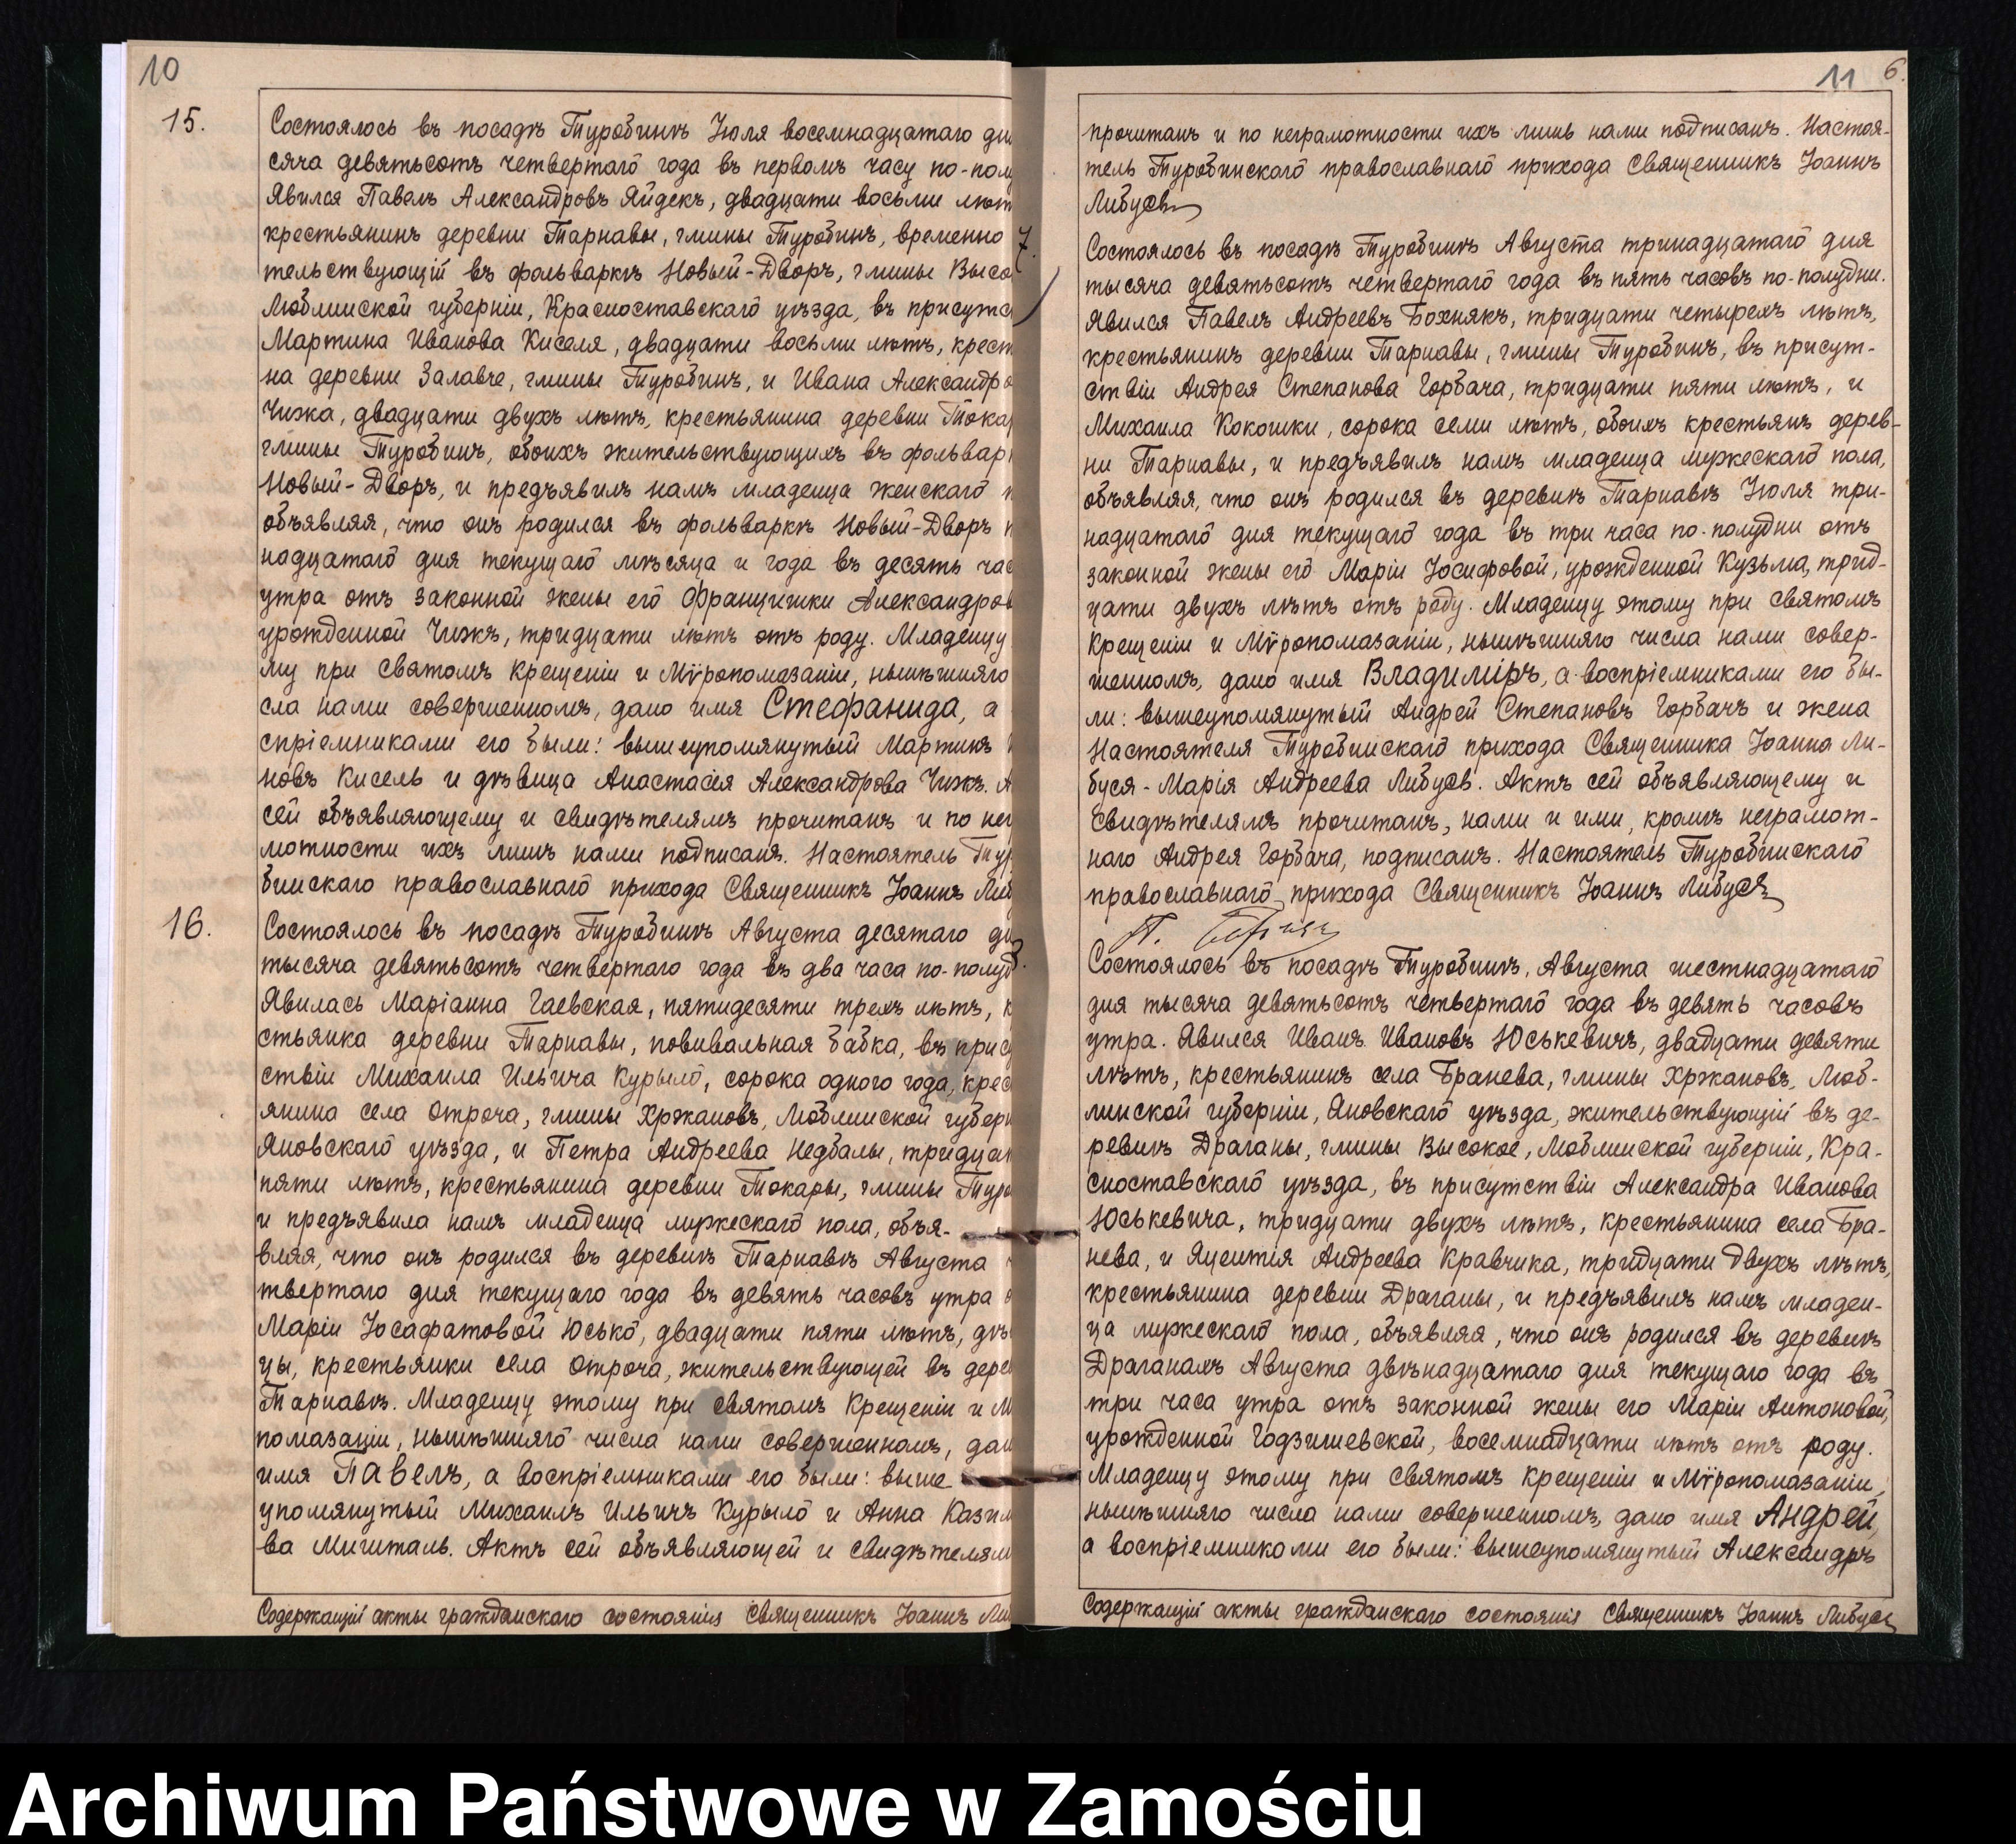 10
15.
Состоялось въ посадѣ Туробинѣ Іюля восемнадцатаго дн
сяча девятьсотъ четвертаго года въ первомъ часу по-пол
Явился Павелъ Александровъ Яйдекъ, двадцати восьми лѣт
крестьянинъ деревни Тарнавы, гмины Туробинъ, временно
тельствующій въ фольваркѣ Новый-Дворъ, гмины Высо
Люблинской губерніи, Красноставскаго уѣзда, въ присутс
Мартина Иванова Киселя, двадцати восьми лѣтъ, крест
на деревни Залавче, гмины Туробинъ, и Ивана Александро
Чижа, двадцати двухъ лѣтъ, крестьянина деревни Тока
гмины Туробинъ, обоихъ жительствующихъ въ фольвар
Новый-Дворъ, и предъявилъ намъ младенца женскаго п
объявляя, что онъ родился въ фольваркѣ Новый-Дворъ
надцатаго дня текущаго мѣсяца и года въ десять час
утра отъ законной жены его Францишки Александров
урожденной Чижъ, тридцати лѣтъ отъ роду. Младенцу
му при Святомъ Крещеніи и Мѵропомазаніи, нынѣшняго
сла нами совершенномъ, дано имя Стефанида, а
спріемниками его были: вышеупомянутый Мартинъ
новъ Кисель и дѣвица Анастасія Александрова Чижъ. А
сей объявляющему и свидѣтелямъ прочитанъ и по нег
мотности ихъ лишь нами подписанъ. Настоятель Тур
бинскаго православнаго прихода Священникъ Іоаннъ Либ
16.
Состоялось въ посадѣ Туробинѣ Августа десятаго дн
тысяча девятьсотъ четвертаго года въ два часа по-полуд
Явилась Маріанна Гаевская, пятидесяти трехъ лѣтъ, к
стьянка деревни Тарнавы, повивальная бабка, въ прису
ствіи Михаила Ильича Курыло, сорока одного года, крес
янина села Отроча, гмины Хржановъ, Люблинской губерн
Яновскаго уѣзда, и Петра Андреева Недбалы, тридцат
пяти лѣтъ, крестьянина деревни Токары, гмины Туро
и предъявила намъ младенца мужескаго пола, объя-
вляя, что онъ родился въ деревнѣ Тарнавѣ Августа
твертаго дня текущаго года въ девять часовъ утра о
Маріи Іосафатовой Юсько, двадцати пяти лѣтъ, дѣ
цы, крестьянки села Отроча, жительствующей въ дере
Тарнавѣ. Младенцу этому при Святомъ Крещеніи и М
помазаніи, нынѣшняго числа нами совершенномъ, дан
имя Павелъ, а воспріемниками его были: выше
упомянутый Михаилъ Ильичъ Курыло и Анна Казим
ва Мишталь. Актъ сей объявляющей и свидѣтелям
Содержащій акты гражданскаго состоянія Священникъ Іоаннъ Ли
11 6.
прочитанъ и по неграмотности ихъ лишь нами подписанъ. Настоя-
тель Туробинскаго православнаго прихода Священникъ Іоаннъ
Либусь
7.
Состоялось въ посадѣ Туробинѣ Августа тринадцатаго дня
тысяча девятьсотъ четвертаго года въ пять часовъ по-полудни.
Явился Павелъ Андреевъ Бохнякъ, тридцати четырехъ лѣтъ,
крестьянинъ деревни Тарнавы, гмины Туробинъ, въ присут-
ствіи Андрея Степанова Горбача, тридцати пяти лѣтъ, и
Михаила Кокошки, сорока семи лѣтъ, обоихъ крестьянъ дерев-
ни Тарнавы, и предъявилъ намъ младенца мужескаго пола,
объявляя, что онъ родился въ деревнѣ Тарнавѣ Іюля три-
надцатаго дня текущаго года въ три часа по-полудни отъ
законной жены его Маріи Іосифовой, урожденной Кузьма, трид-
цати двухъ лѣтъ отъ роду. Младенцу этому при Святомъ
Крещеніи и Мѵропомазаніи, нынѣшняго числа нами совер-
шенномъ, дано имя Владиміръ, а воспріемниками его бы-
ли: вышеупомянутый Андрей Степановъ Горбачъ и жена
Настоятеля Туробинскаго прихода Священника Іоанна Ли-
буся - Марія Андреева Либусь. Актъ сей объявляющему и
свидѣтелямъ прочитанъ, нами и ими, кромѣ неграмот-
наго Андрея Горбача, подписанъ. Настоятель Туробинскаго
православнаго прихода Священникъ Іоаннъ Либусь
П.
Состоялось въ посадѣ Туробинѣ, Августа шестнадцатаго
дня тысяча девятьсотъ четвертаго года въ девять часовъ
утра. Явился Иванъ Ивановъ Юськевичъ, двадцати девяти
лѣтъ, крестьянинъ села Бранева, гмины Хржановъ, Люб-
линской губерніи, Яновскаго уѣзда, жительствующій въ де-
ревнѣ Драганы, гмины Высокое, Люблинской губерніи, Кра-
сноставскаго уѣзда, въ присутствіи Александра Иванова
Юськевича, тридцати двухъ лѣтъ, крестьянина села Бра-
нева, и Яцентія Андреева Кравчика, тридцати двухъ лѣтъ,
крестьянина деревни Драганы, и предъявилъ намъ младен-
ца мужескаго пола, объявляя, что онъ родился въ деревнѣ
Драганахъ Августа двѣнадцатаго дня текущаго года въ
три часа утра отъ законной жены его Маріи Антоновой,
урожденной Годзишевской, восемнадцати лѣтъ отъ роду.
Младенцу этому при Святомъ Крещеніи и Мѵропомазаніи,
нынѣшняго числа нами совершенномъ, дано имя Андрей,
а воспріемниками его были: вышеупомянутый Александръ
Содержащій акты гражданскаго состоянія Священникъ Іоаннъ Либусь
Archiwum Państwowe w Zamościu